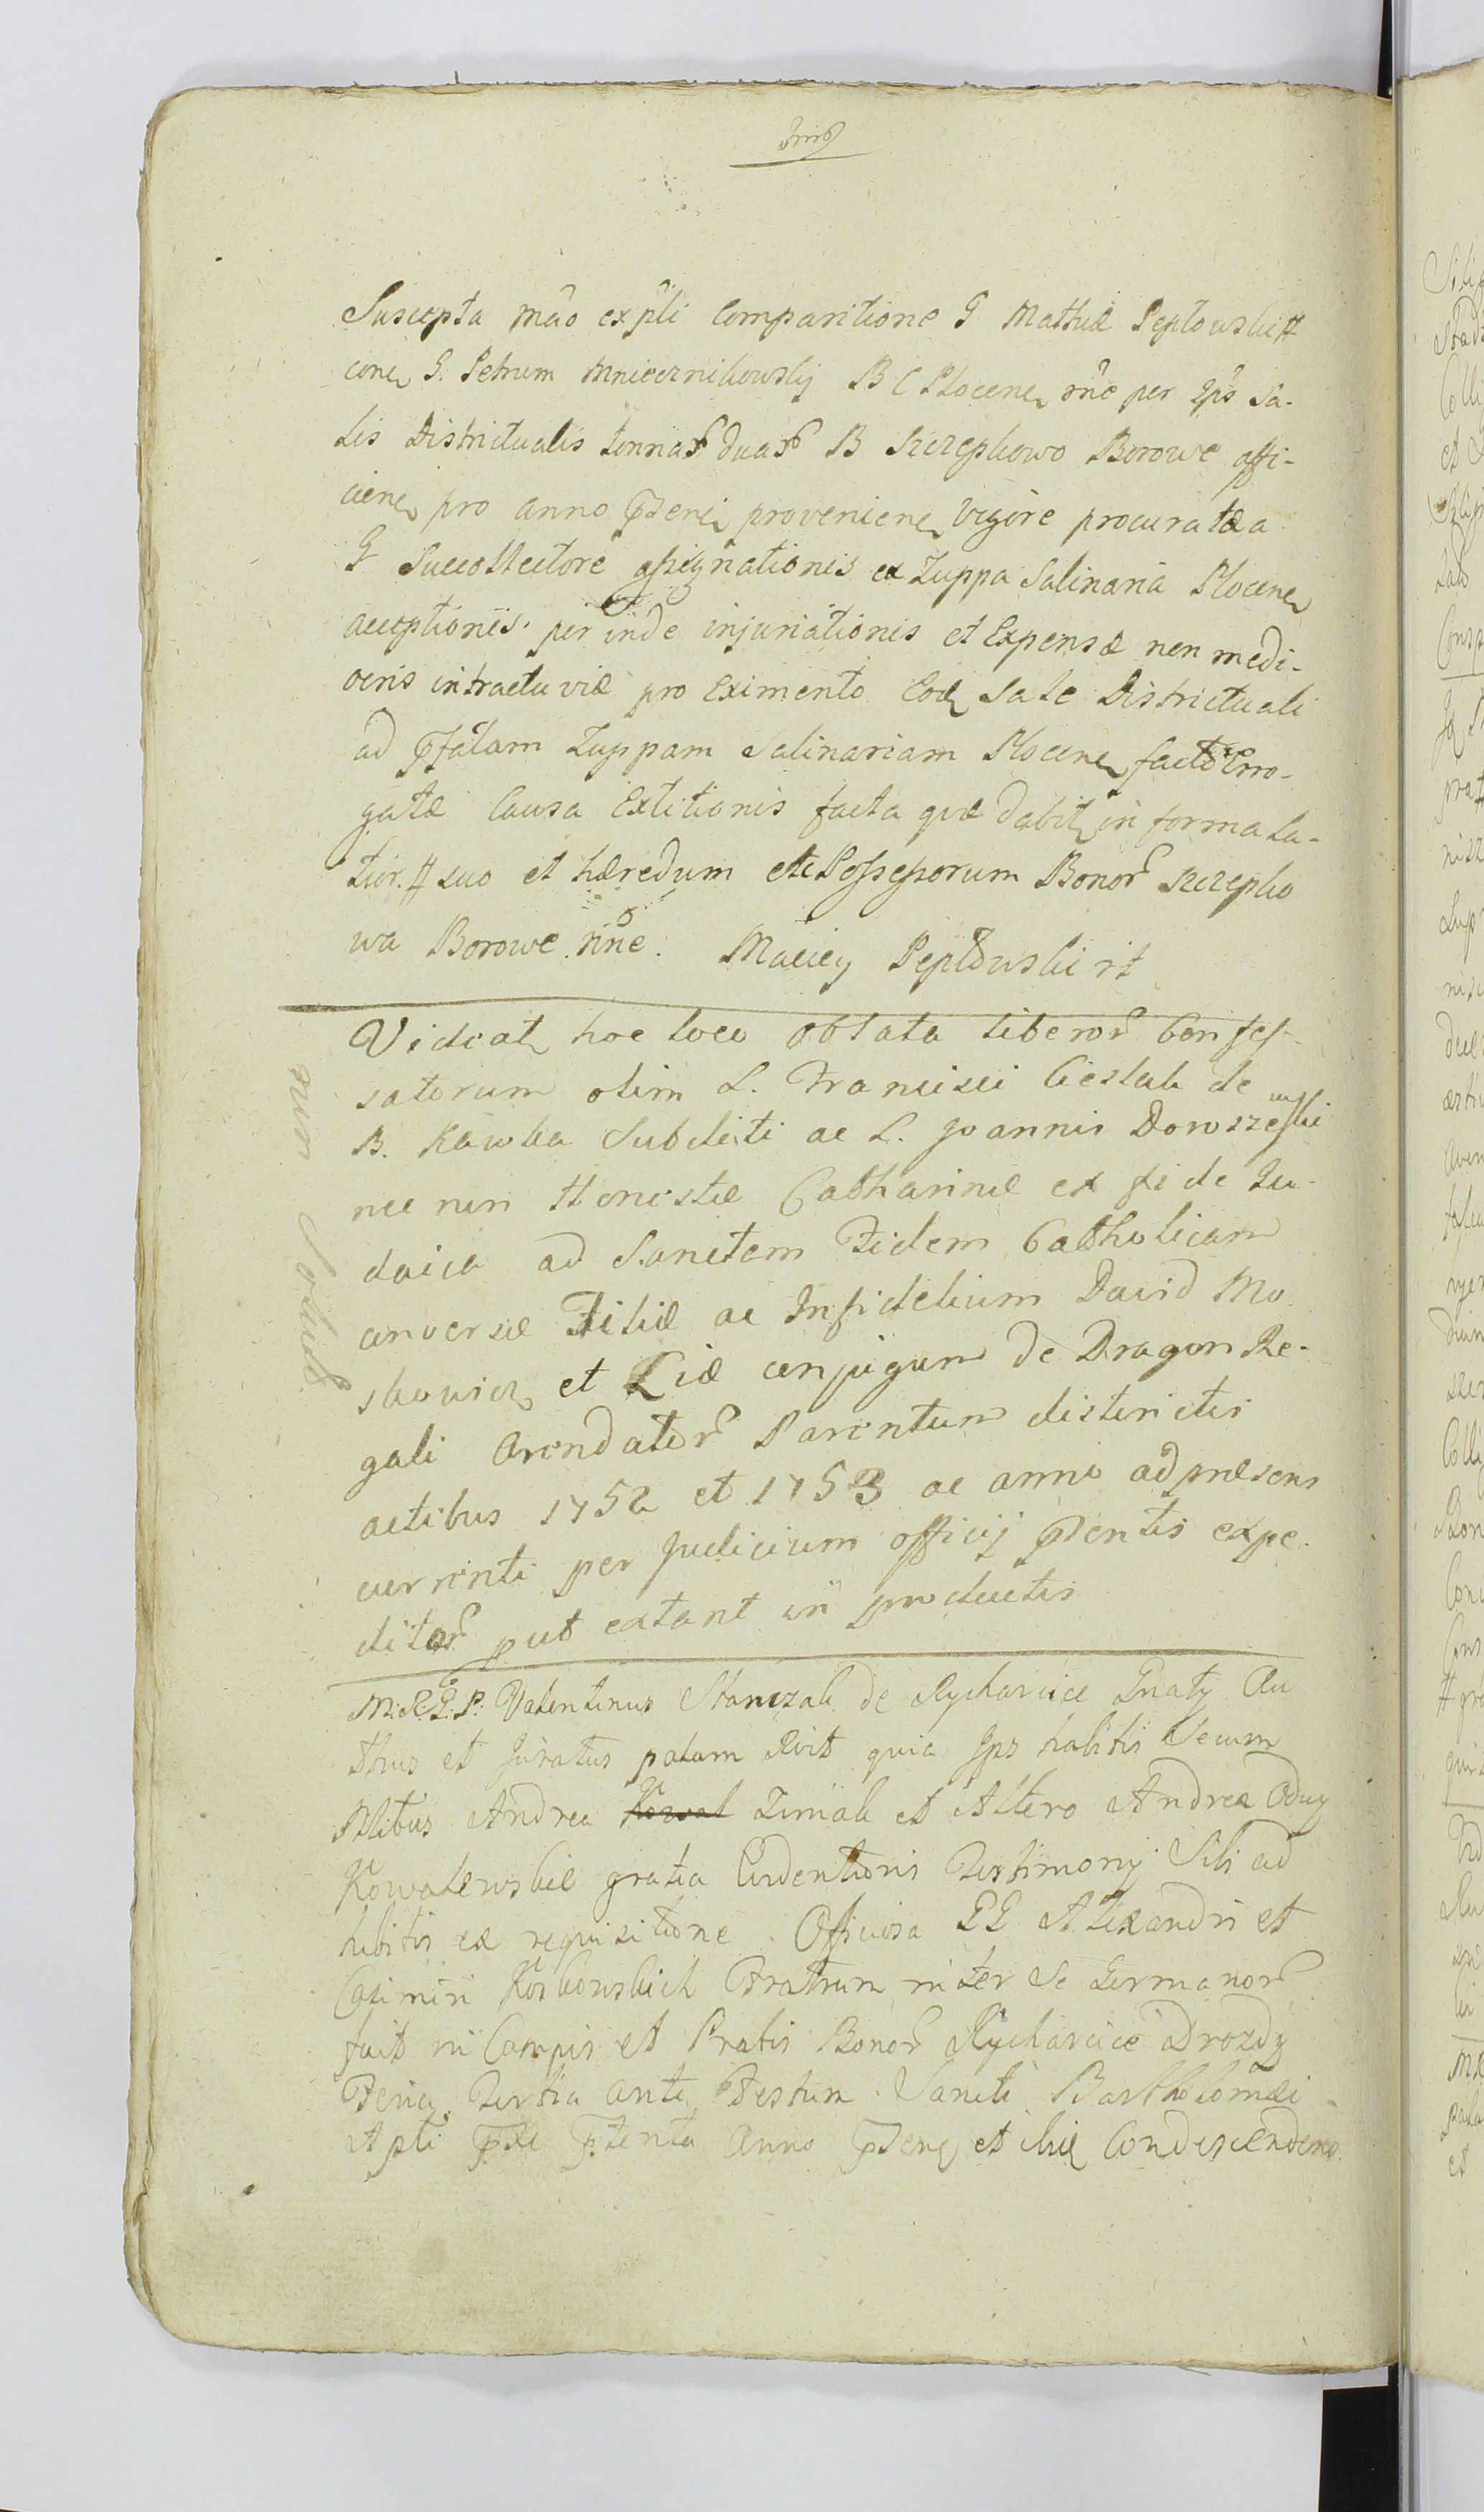 Suscepta mão ex płi Comparitione G Mathiæ Peptowski #
con G. Petrum Mnieeznikowsky B C Plocen rñe per Ips Sa-
lis Districtualis tonnar duar B Szczepkowo Borowe offi-
cien pro anno pseni provenien vigore procuratæ a
G Succollectore assignationis ex Zuppa Salinaria Plocen
acceptionis per inde injuriationis et Expensæ non medi-
ocris in tractu viæ pro Eximento Eod Sale Districtuali
ad pfatam Zuppam Salinariam Plocen facto Erro-
gatæ Causa Extitionis facta quæ dabit in forma La-
tior. # suo et hæredum etc Possessorum Bonor Szczepko
wa Borowe nñe. Maciey Peptowski rt
Videat hoc loco oblata liberor Confes-
satorum olim L. Francisci Cieslak de
B. Kawka Subditi ac L. Joannis Doroszewski
nec non Honestæ Catharinæ ex fide Ju-
daica ad Sanctam Fidem Catholicam
conversæ Filiæ ac Infidelium David Mo
skowicz et Liæ conjugum de Dragon Re-
gali Arendator Parentum districtis
actibus 1752 et 1753 ac anno ad præsens
currenti per Judicium officij psentis expe-
ditor put extant in productis
non Solut
M: R: G: P: Valentinus Stanczak de Rycharcice Gnaty Au
thus et Juratus palam Rvit quia Ips habitis Secum
Nlibus Andrea Kowal Zimak et Altero Andrea
Kowalewskie gratia Evidentioris Testimony Sibi ad
hibitis ex requisitione Officiosa GG Alexandri et
Casimiri Koskowskich Fratrum inter Se Germanor
fuit in Campis et Pratis Bonor Rycharcice Drozdy
Feria Tertia ante Festum Sancti Bartholomæi
Apti pxe ptenta Anno psen et huc Condescenden